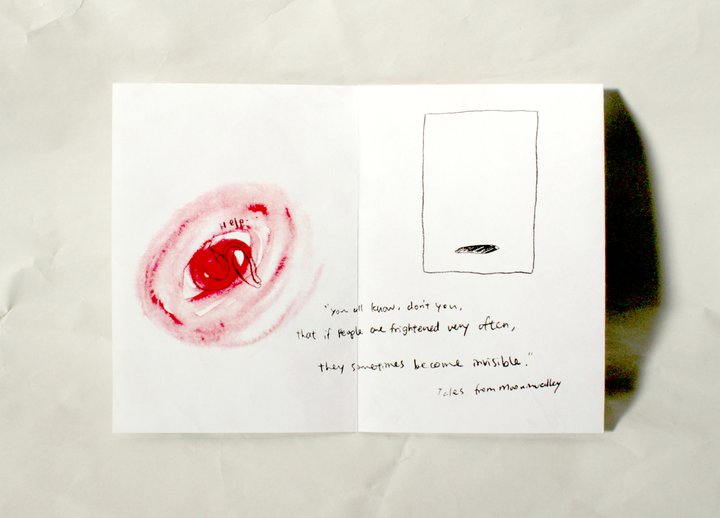 Help.
"you all know, don't you,
that if people are frightened very often,
they sometimes become invisible."
Tales from Moominvalley